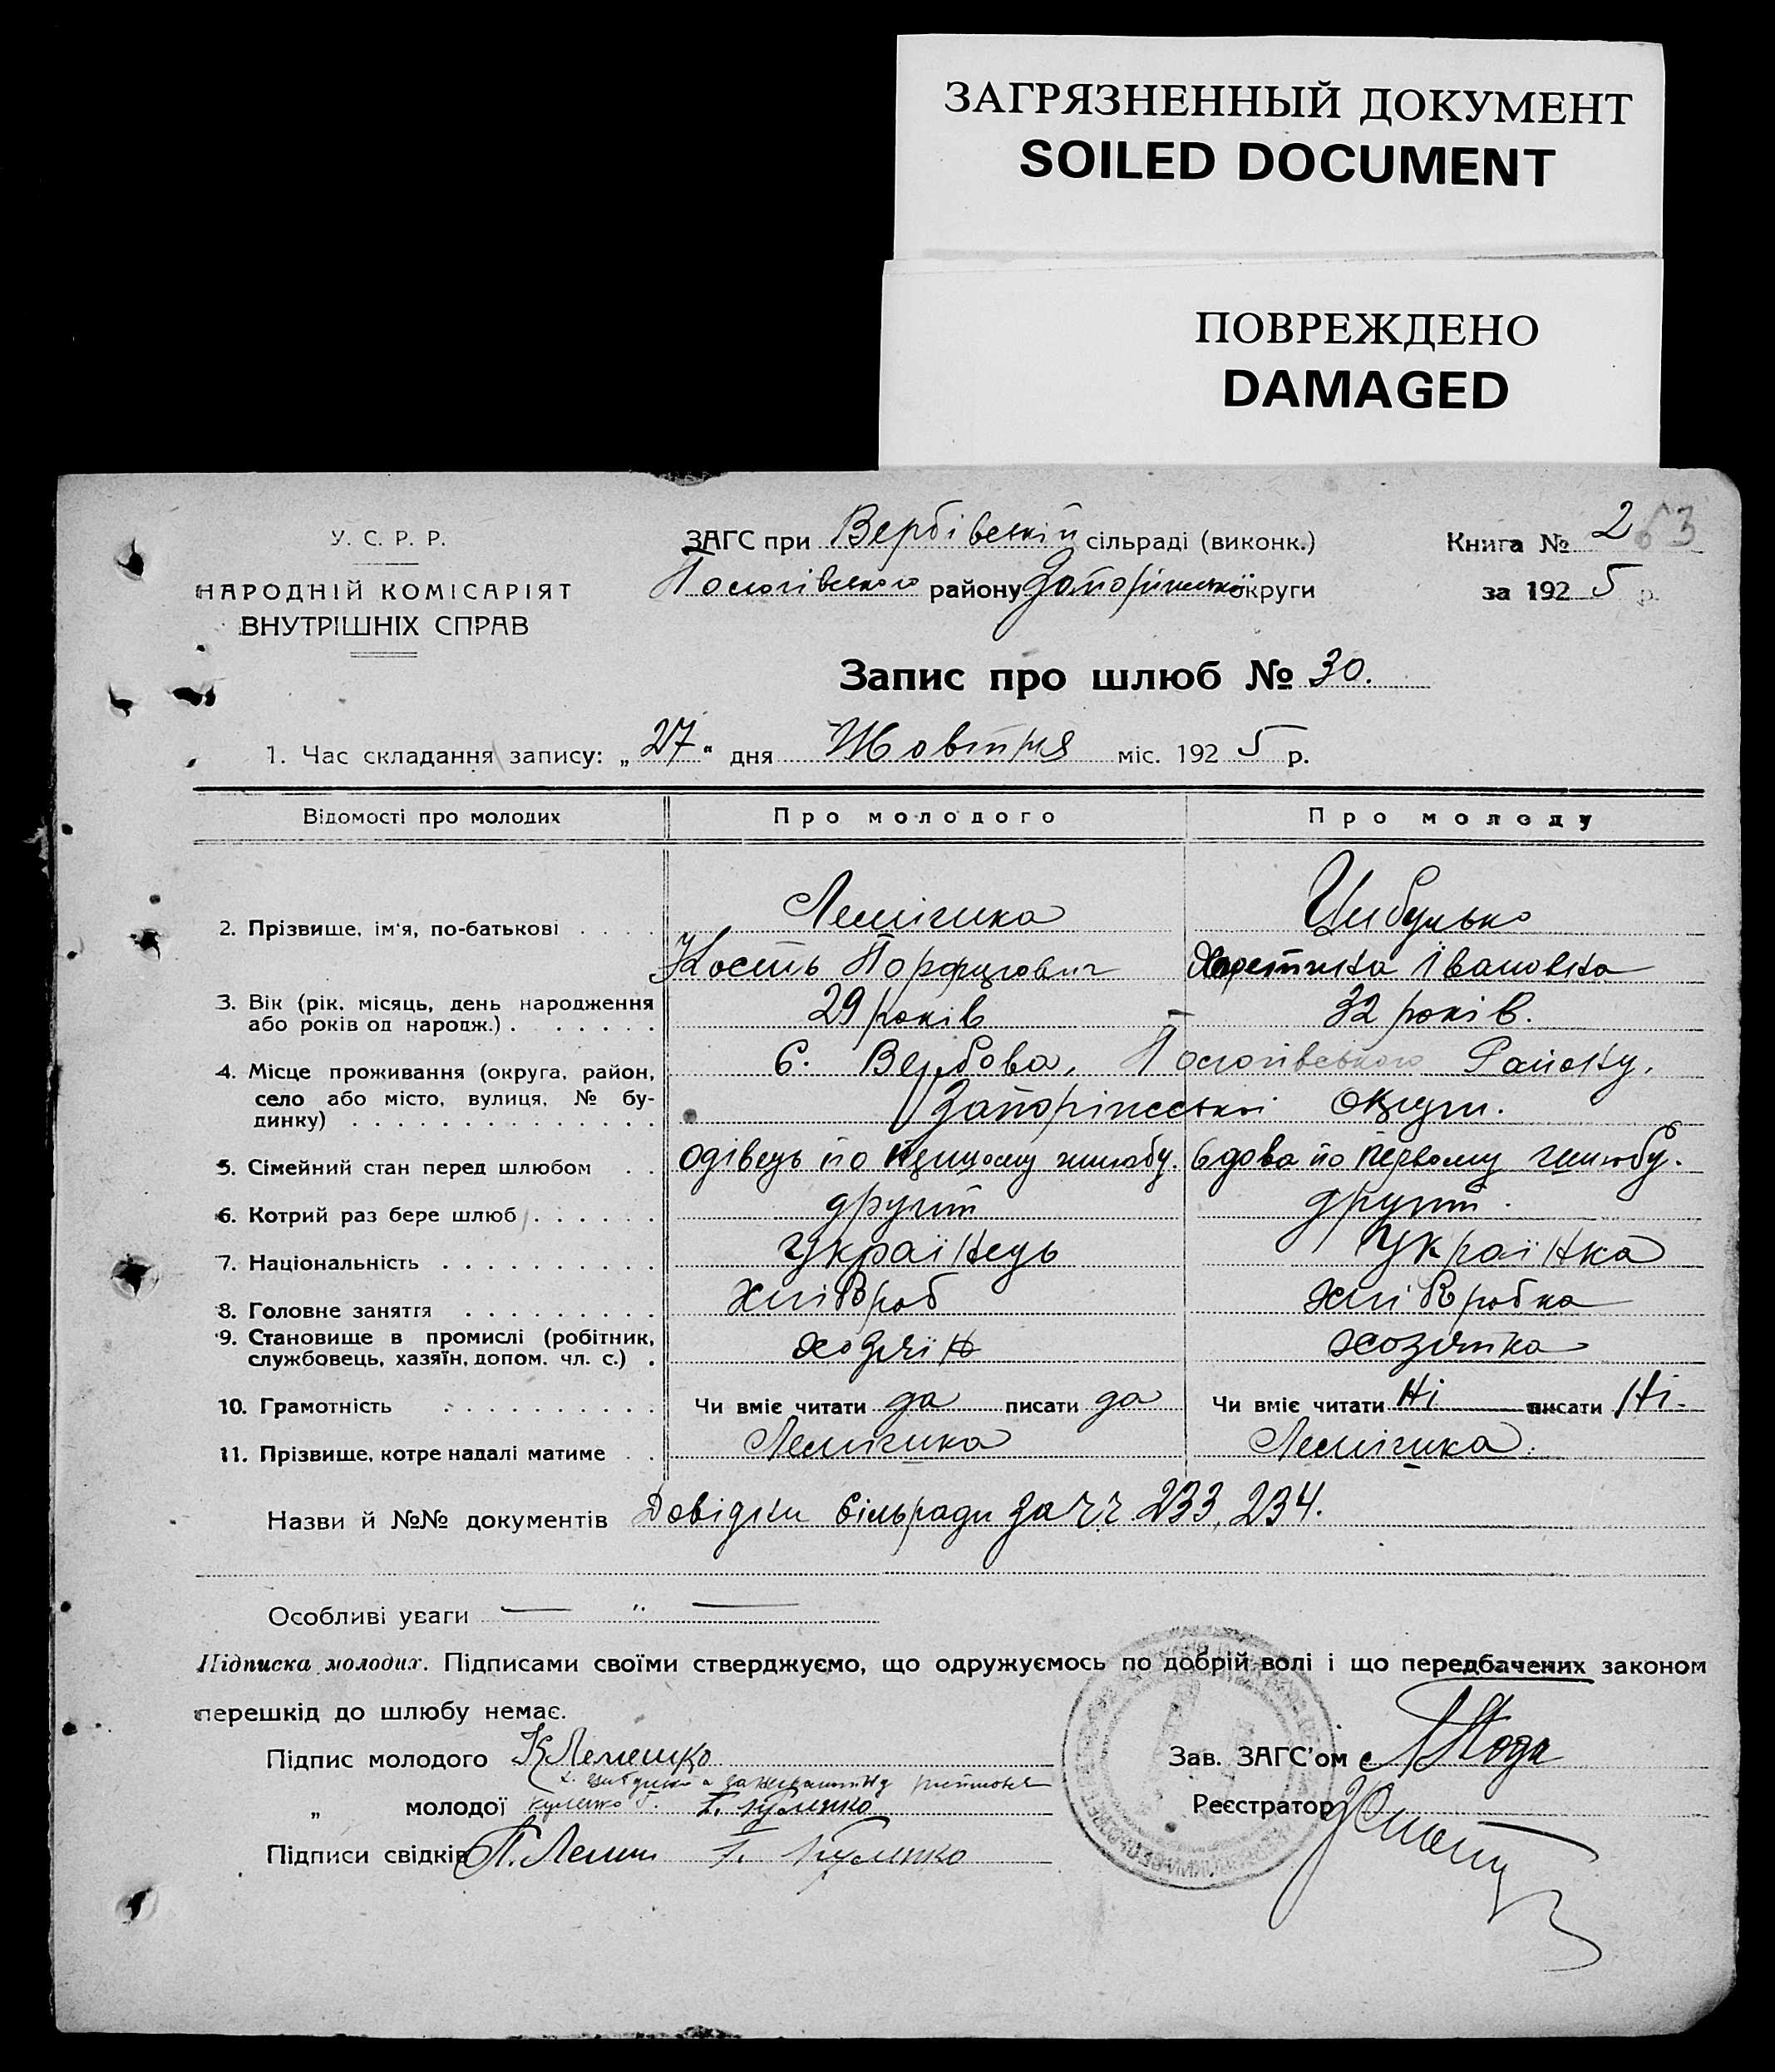 ЗАГРЯЗНЕННЫЙ ДОКУМЕНТ
SOILED DOCUMENT
ПОВРЕЖДЕНО
DAMAGED
У. С. Р. Р.
НАРОДНІЙ КОМІСАРІЯТ
ВНУТРІШНІХ СПРАВ
ЗАГС при Вербівській сільраді (виконк.)
Пологівського району Запоріжської округи
Книга № 2 63
за 1925 р.
Запис про шлюб № 30.
1. Час складання запису: „27" дня Жовтня міс. 1925 р.
Відомості про молодих Про молодого Про молоду
2. Прізвище, ім'я, по-батькові . . . . Лемішка Цибулько
Кость Порфирович Христина Івановна
3. Вік (рік, місяць, день народження
або років од народж.) . . . . . . 29 років 32 років.
4. Місце проживання (округа, район,
село або місто, вулиця, № бу-
динку) . . . . . . . . . . . . .
с. Вербова, Пологівського Району,
Запоріжської Округи.
5. Сімейний стан перед шлюбом . . одівець по первому шлюбу. вдова по первому шлюбу.
6. Котрий раз бере шлюб . . . . . . другий другий.
7. Національність . . . . . . . . . . Українець Українка
8. Головне заняття . . . . . . . . . Хлібороб Хліборобка
9. Становище в промислі (робітник,
службовець, хазяїн, допом. чл. с.) . хозяїн хозяйка
10. Грамотність . . . . . . . . . . Чи вміє читати да писати да Чи вміє читати Ні писати Ні.
11. Прізвище, котре надалі матиме . . Лемішка Лемішка.
Назви й №№ документів Довідки Сільради за чч 233, 234.
Особливі уваги — „ —
Підписка молодих. Підписами своїми стверджуємо, що одружуємось по добрій волі і що передбачених законом
перешкід до шлюбу немає.
Підпис молодого К Лемешко
„ молодої
Підписи свідків
Зав. ЗАГС'ом
Реєстратор